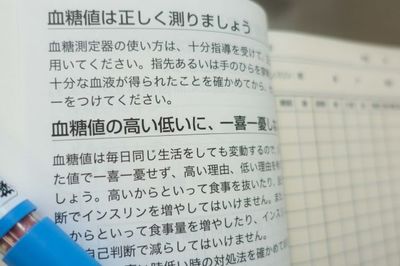 血糖値は正しく測りましょう
血糖測定器の使い方は、十分指導を受けて、
用いてください。指先あるいは手のひらを
十分な血液が得られたことを確かめてから、
ーをつけてください。
血糖値の高い低いに、一喜一憂し
血糖値は毎日同じ生活をしても変動するので、
た値で一喜一憂せず、高い理由、低い理由を
しょう。高いからといって食事を抜いたり、
断でインスリンを増やしてはいけません。また
からといって食事量を増やしたり、インス
自己判断で減らしてはいけません。
時低い時の対処法を確かめて